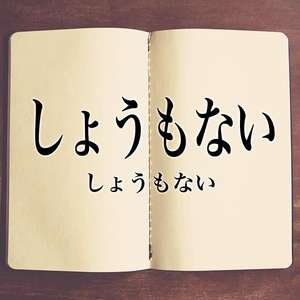 しょうもない
しょうもない